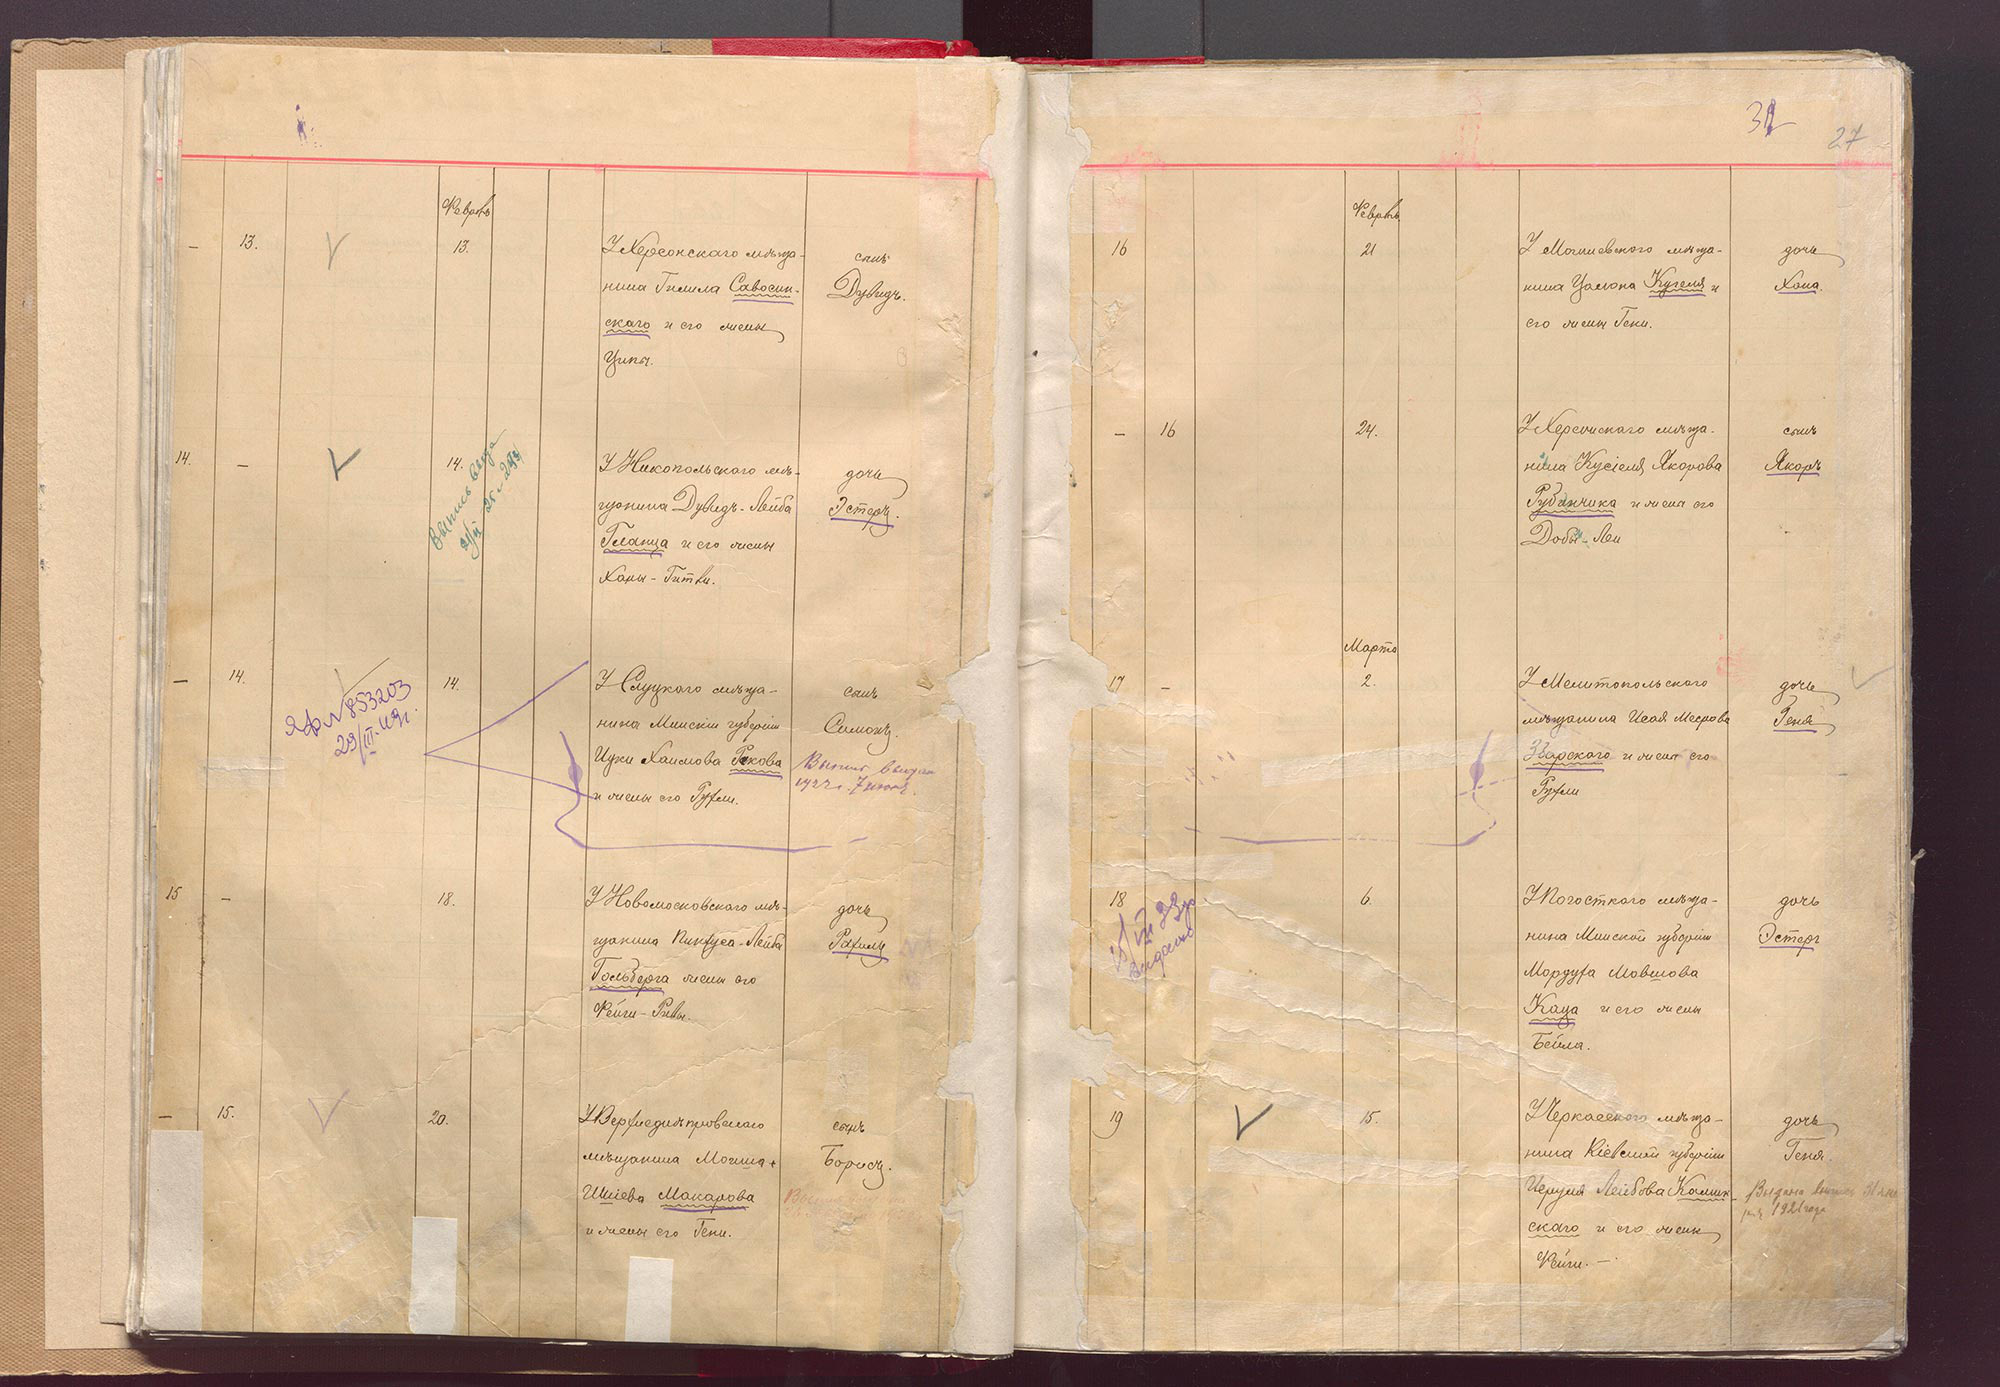 Февраль
13.
13.
У Херсонскаго мѣща-
нина Гилила Савосин-
скаго и его жены
Ципы.
сынъ
Дувидъ.
14.
14.
Выпись выдана
У Никопольскаго мѣ-
щанина Дувидъ-Лейба
Гланца и его жены
Ханы-Гитли.
дочь
Эстеръ.
14.
14.
ЯФ №853203
29/III-49г.
У Слуцкаго мѣща-
нина Минской губерніи
Ицки Хаимова Рекова
и жены его Рухли.
сынъ
Симонъ.
1922 г. 7 июня.
15
18.
У Новомосковскаго мѣ-
щанина Пинхуса-Лейба
Гольберга жены его
Фейги-Ривы.
дочь
Рахиль
15.
20.
У Верхнеднѣпровскаго
мѣщанина Мовша
Шліева Макарова
и жены его Гени.
сынъ
Борисъ.
27
Февраль
16
21
У Могилевскаго мѣща-
нина Цалона Кугеля и
его жены Гени.
дочь
Хана.
16
24.
У Херсонскаго мѣща-
нина Кусіеля Якорова
Рубинчика и жены его
Добы-Леи
сынъ
Якоръ
Марта
17
2.
У Мелитопольскаго
мѣщанина Исая Меерова
Збарскаго и жены его
Рухли
дочь
Геня
18
6.
VIII 33г
видано
У Погосткаго мѣща-
нина Минской губерніи
Мордуха Мовшова
Каца и его жены
Бейла.
дочь
Эстеръ
19
15.
У Черкасскаго мѣща-
нина Кіевской губерніи
Иеруля Лейбова Камин-
скаго и его жены
Фейги.—
дочь
Геня.
Выдана выпись 31
1921 года